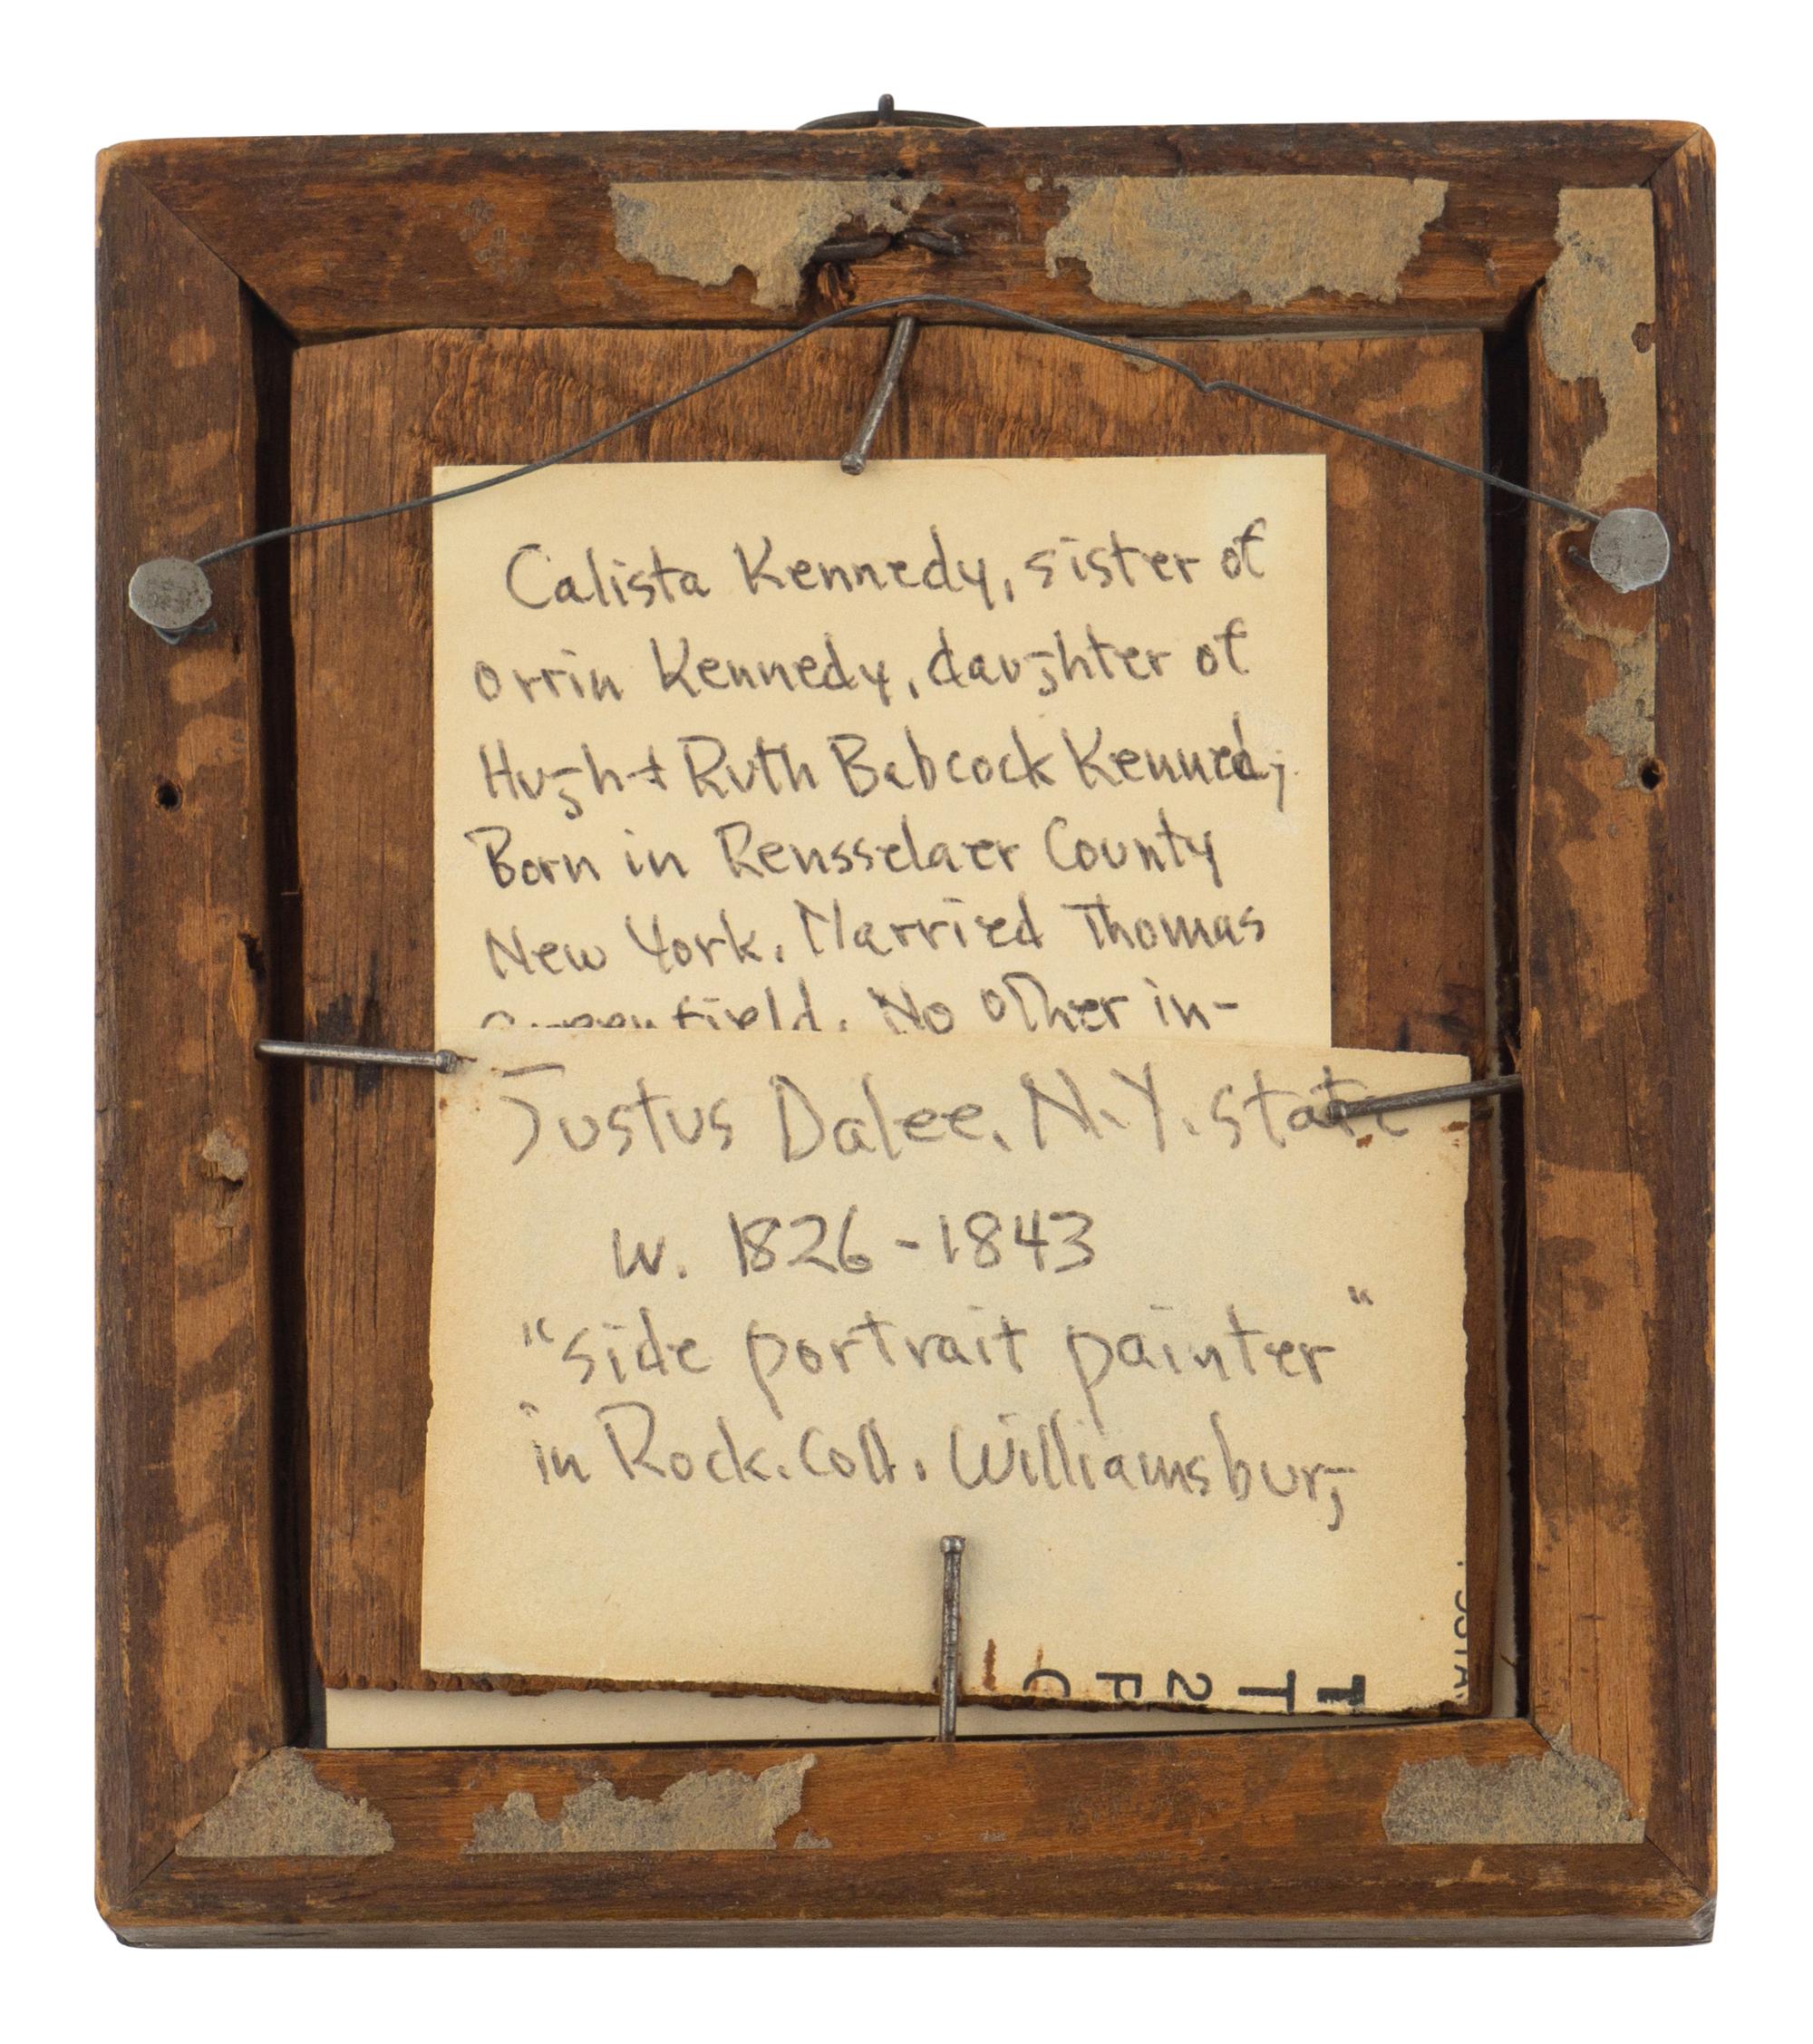 Calista Kennedy, sister of
Orrin Kennedy, daughter of
Hugh + Ruth Babcock Kennedy
Born in Rensselaer County
New York. Married Thomas
Greenfield. No other in-
Justus Dalee. N.Y. state
w. 1826-1843
"side portrait painter"
in Rock. Coll. Williamsburg